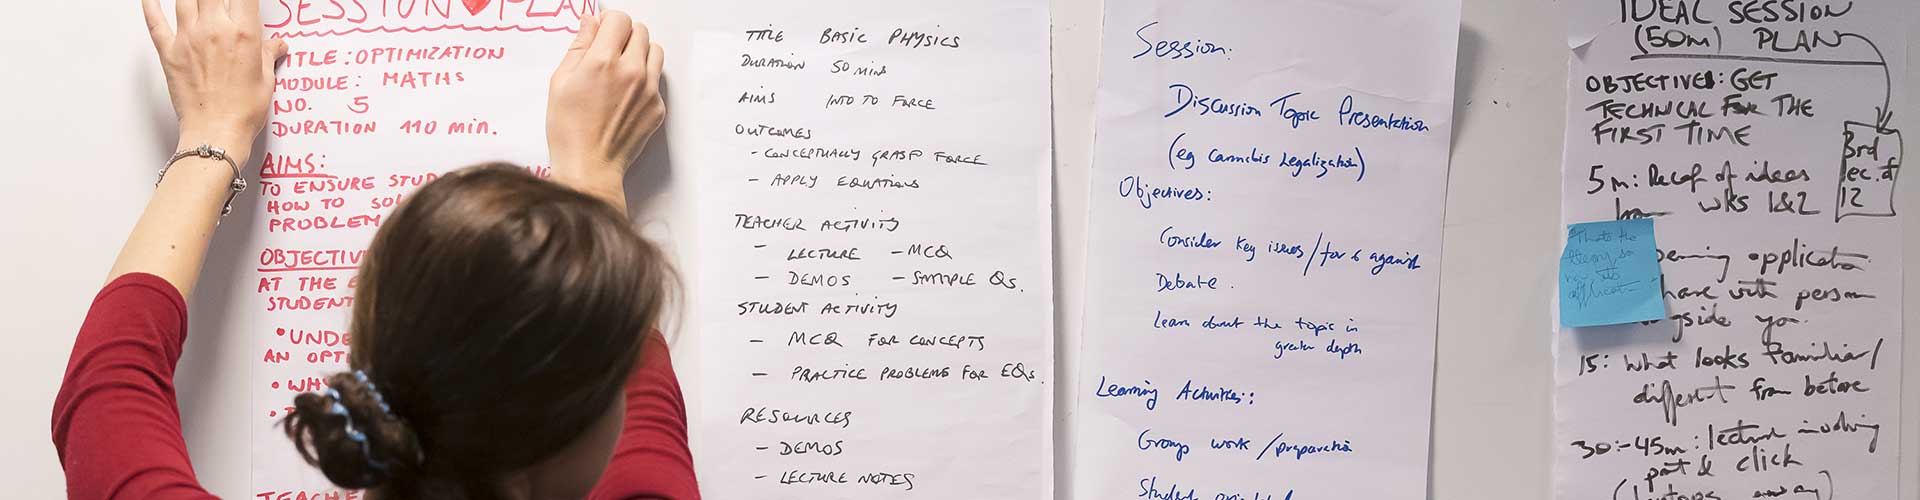 SESSION PLAN
TITLE: OPTIMIZATION
MODULE: MATHS
NO. 5
DURATION 110 min.
AIMS:
TO ENSURE
HOW TO
PROBLEM
OBJECTIV
AT THE
STUDENT
• UNDE
AN OPT
• WHY
TEACHE
TITLE BASIC PHYSICS
DURATION 50 MINS
AIMS INTO TO FORCE
OUTCOMES
- CONCEPTUALLY GRASP FORCE
- APPLY EQUATIONS
TEACHER ACTIVITY
- LECTURE - MCQ
- DEMOS - SAMPLE QS.
STUDENT ACTIVITY
- MCQ FOR CONCEPTS
- PRACTICE PROBLEMS FOR EQS.
RESOURCES
- DEMOS
- LECTURE NOTES
Session:
Discussion Topic Presentation
(eg Cannabis Legalization)
Objectives:
Consider key issues/for & against
Debate.
Learn about the topic in
greater depth
Learning Activities:
Group work/preparation
Student
IDEAL SESSION
(50m) PLAN
OBJECTIVES: GET
TECHNICAL FOR THE
FIRST TIME
3rd
lec. of
12
5m: Recap of ideas
from wks 1&2
Thats the
theory so
application
application
share with person
you.
15: What looks familiar/
different from before
30:-45m: lecture involving
click